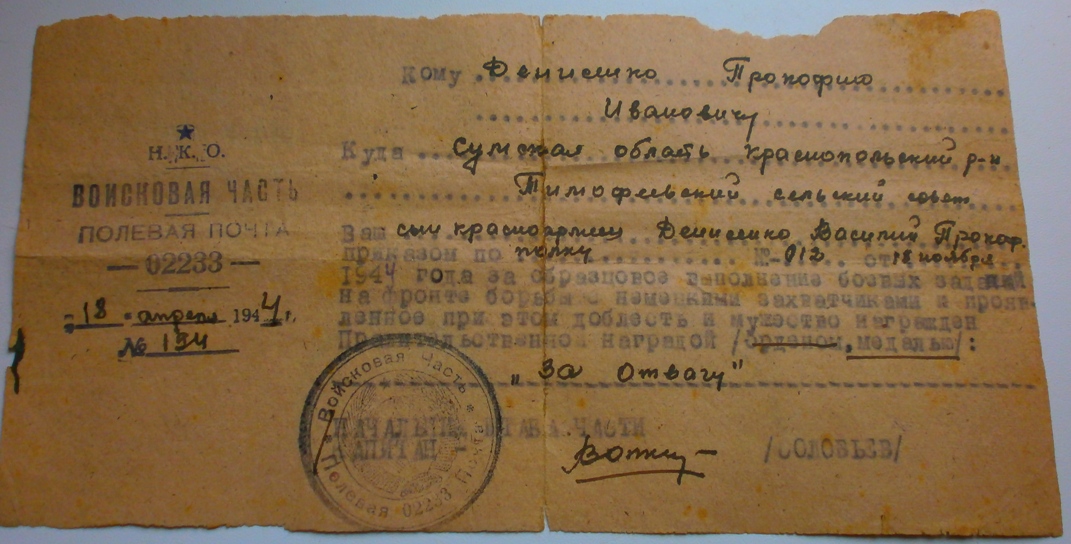 Кому Денисенко Прокофию
Ивановичу
Куда Сумская область Краснопольский р-н
Тимофеевский сельский совет
★
Н.К.О.
ВОИСКОВАЯ ЧАСТЬ
ПОЛЕВАЯ ПОЧТА
— 02233 —
"18" апреля 1944 г.
№ 134
Ваш сын красноармеец Денисенко Василий Прокоф.
приказом по полку № 012 от 18 ноября
1944 года за образцовое выполнение боевых заданий
на фронте борьбы с немецкими захватчиками и прояв-
ленное при этом доблесть и мужество награжден
Правительственной наградой /орденом, медалью/:
"За отвагу"
НАЧАЛЬНИК ШТАБА ЧАСТИ
КАПИТАН - /СОЛОВЬЕВ/
Войсковая Часть * Полевая Почта * 02233